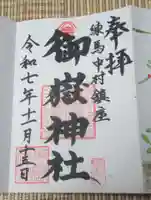 奉拝
練馬中村鎮座
御嶽神社
令和七年十一月十五日